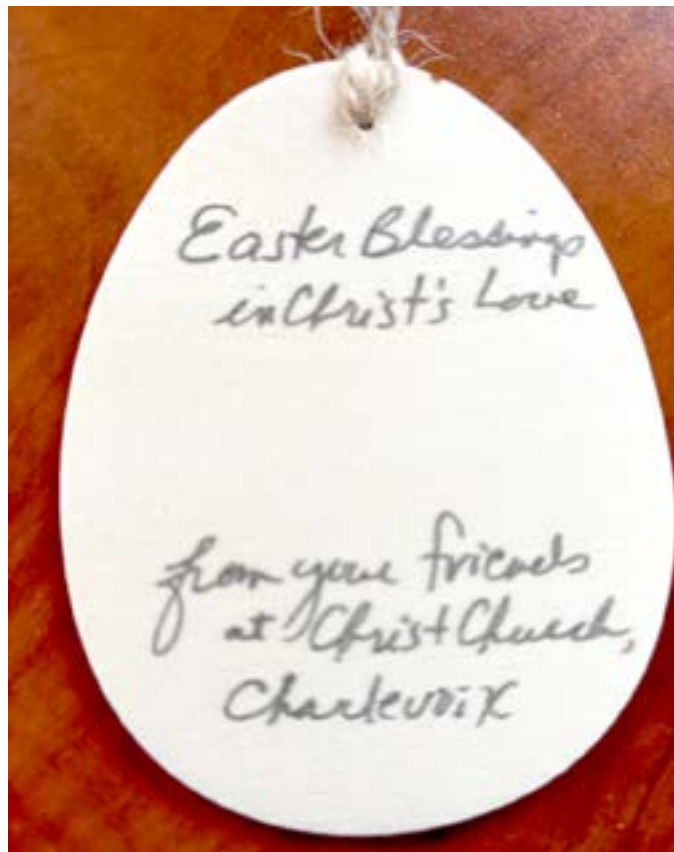 Easter Blessings
in Christ's Love
from your friends
at Christ Church,
Charlevoix